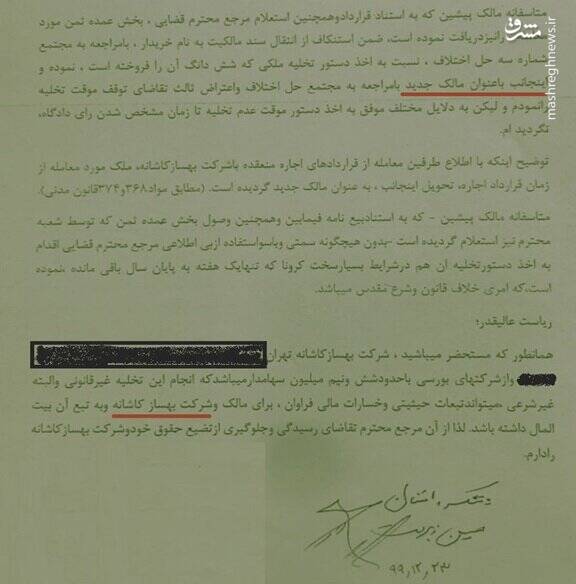 متاسفانه مالک پیشین که به استناد قراردادوهمچنین استعلام مرجع محترم قضایی ، بخش عمده ثمن مورد
رانیزدریافت نموده است، ضمن استنکاف از انتقال سند مالکیت به نام خریدار ، بامراجعه به مجتمع
شماره سه حل اختلاف ، نسبت به اخذ دستور تخلیه ملکی که شش دانگ آن را فروخته است ، نموده و
اینجانب باعنوان مالک جدید بامراجعه به مجتمع حل اختلاف واعتراض ثالث تقاضای توقف موقت تخلیه
رانمودم و لیکن به دلایل مختلف موفق به اخذ دستور موقت عدم تخلیه تا زمان مشخص شدن رای دادگاه،
نگردید ام.
توضیح اینکه با اطلاع طرفین معامله از قراردادهای اجاره منعقده باشرکت بهسازکاشانه، ملک مورد معامله از
زمان قرارداد اجاره، تحویل اینجانب ، به عنوان مالک جدید گردیده است. (مطابق مواد۳۶۸و۳۷۴قانون مدنی).
متاسفانه مالک پیشین - که به استنادبیع نامه فیمابین وهمچنین وصول بخش عمده ثمن که توسط شعبه
محترم نیز استعلام گردیده است -بدون هیچگونه سمتی وباسواستفاده ازبی اطلاعی مرجع محترم قضایی اقدام
به اخذ دستورتخلیه ان هم درشرایط بسیارسخت کرونا که تنهایک هفته به پایان سال باقی مانده ،نموده
است،که امری خلاف قانون وشرع مقدس میباشد.
ریاست عالیقدر؛
همانطور که مستحضر میباشید ، شرکت بهسازکاشانه تهران
وازشرکتهای بورسی باحدودشش ونیم میلیون سهامدارمیباشدکه انجام این تخلیه غیرقانونی والبته
غیرشرعی ،میتواندتبعات حیثیتی وخسارات مالی فراوان ، برای مالک وشرکت بهساز کاشانه وبه تبع آن بیت
المال داشته باشد. لذا از آن مرجع محترم تقاضای رسیدگی وجلوگیری ازتضیع حقوق خودوشرکت بهسازکاشانه
رادارم.
۹۹,۱۲,۲۳
مشرق
mashreghnews.ir